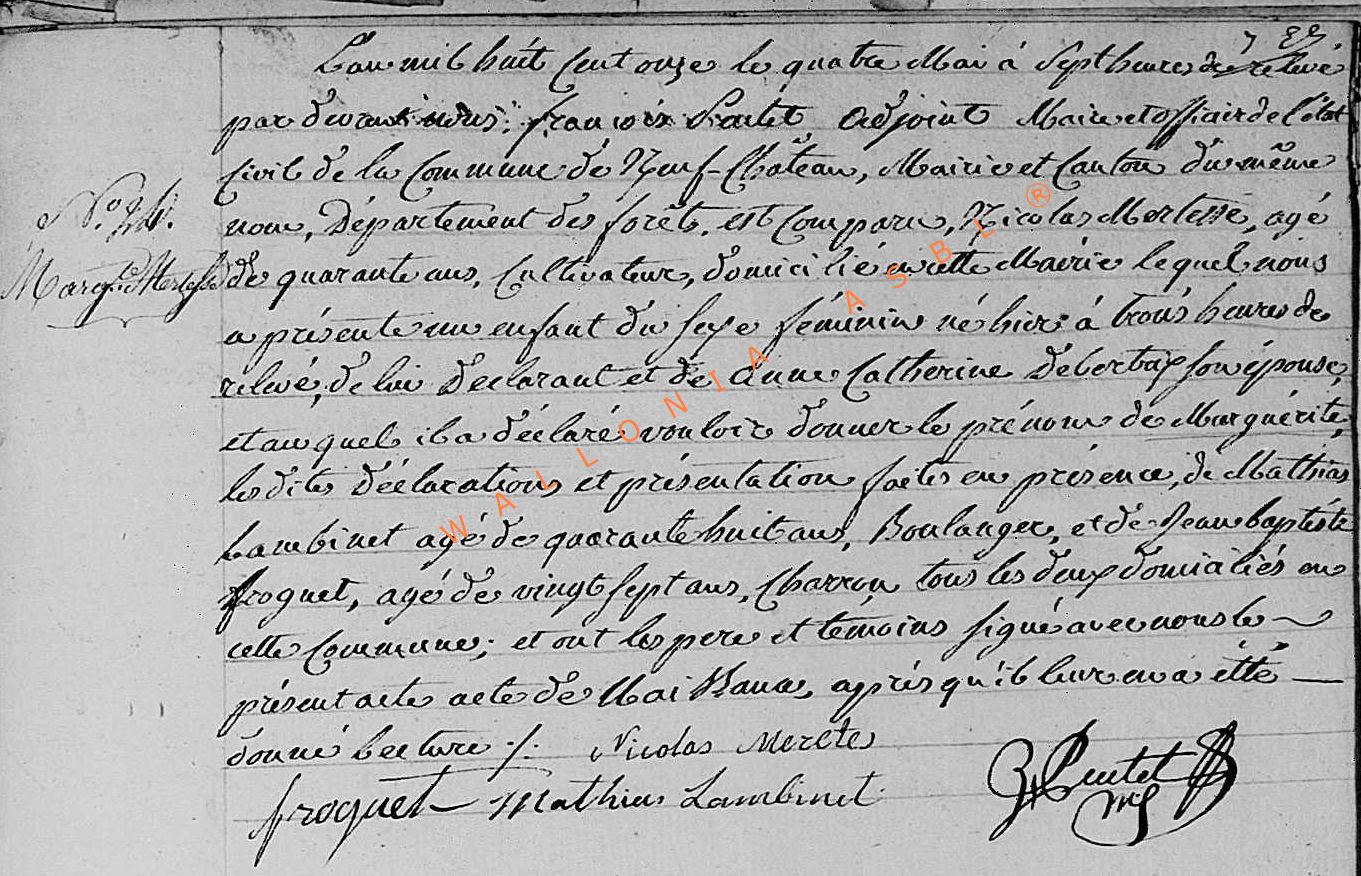 L'an mil huit cent onze le quatre Mai à Sept heures de relevé
par devant nous françois Pentet Adjoint Maire et officier de l'état
Civil de la Commune de Neuf-Château, Mairie et Canton du même
nom, Département des forêts, est comparu, Nicolas Mertesse, agé
N.o 24.
Margte. Mertesse
de quarante ans, Cultivateur, domicilié en cette Mairie lequel nous
a présenté un enfant du sexe féminin né hier à trois heures de
relevé, de lui Déclarant et de Anne Catherine son épouse,
et auquel il a déclaré vouloir donner le prénom de Marguérite,
les dites déclarations et présentation faites en présence, de Mathias
Lambinet agé de quarante huit ans, Boulanger, et de Jean baptiste
froquet, agé de vingt sept ans, Charron, tous les deux domiciliés en
cette Commune; et ont les pere et témoins signé avec nous le
présent acte acte de, après qu'il leur en a été
donné Lecture ./. Nicolas Mertes
froquet Mathias Lambinet
Pentet
WALLONIA ASBL ®